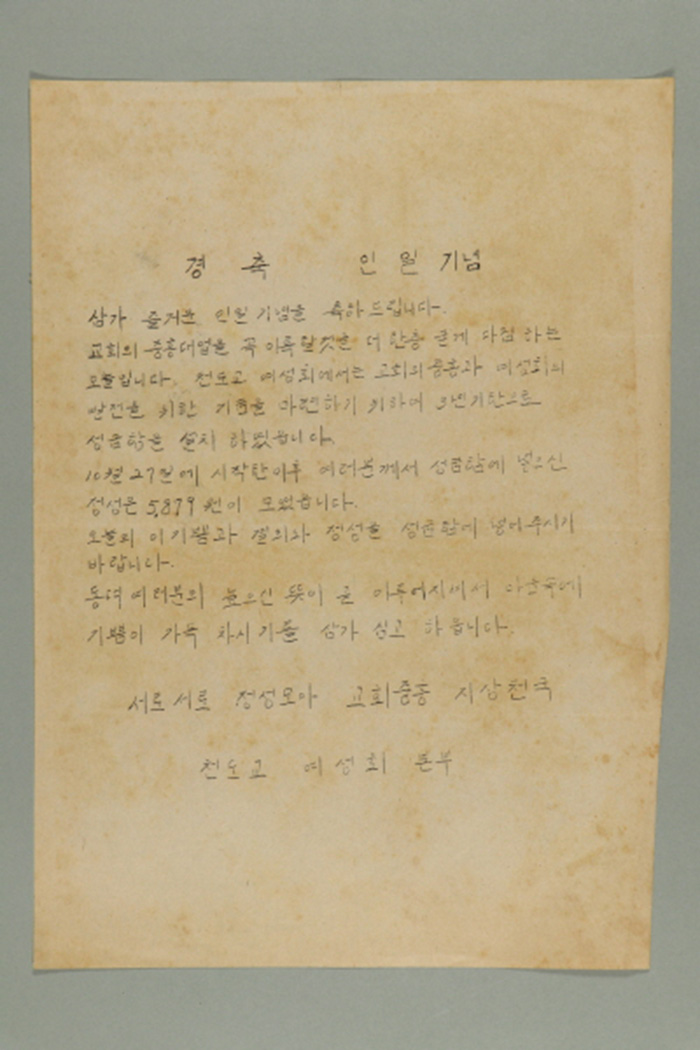 경 축 인일 기념
삼가 즐거운 인일 기념을 축하 드립니다.
교회의 중흥대업을 꼭 이룩할것을 더 한층 굳게 다짐 하는
오늘입니다. 천도교 여성회에서는 교회의 중흥과 여성회의
발전을 위한 기금을 마련하기 위하여 3년기한으로
성금함을 설치 하였읍니다.
10월 27일에 시작한이후 여러분께서 성금함에 넣으신
정성은 5,879원이 모였읍니다.
오늘의 이 기쁨과 결의와 정성을 성금함에 넣어주시기
바랍니다.
동덕 여러분의 높으신 뜻이 곧 이루어지셔서
기쁨이 가득 차시기를 삼가 심고 하옵니다.
서로서로 정성모아 교회중흥 지상천국
천도교 여성회 본부